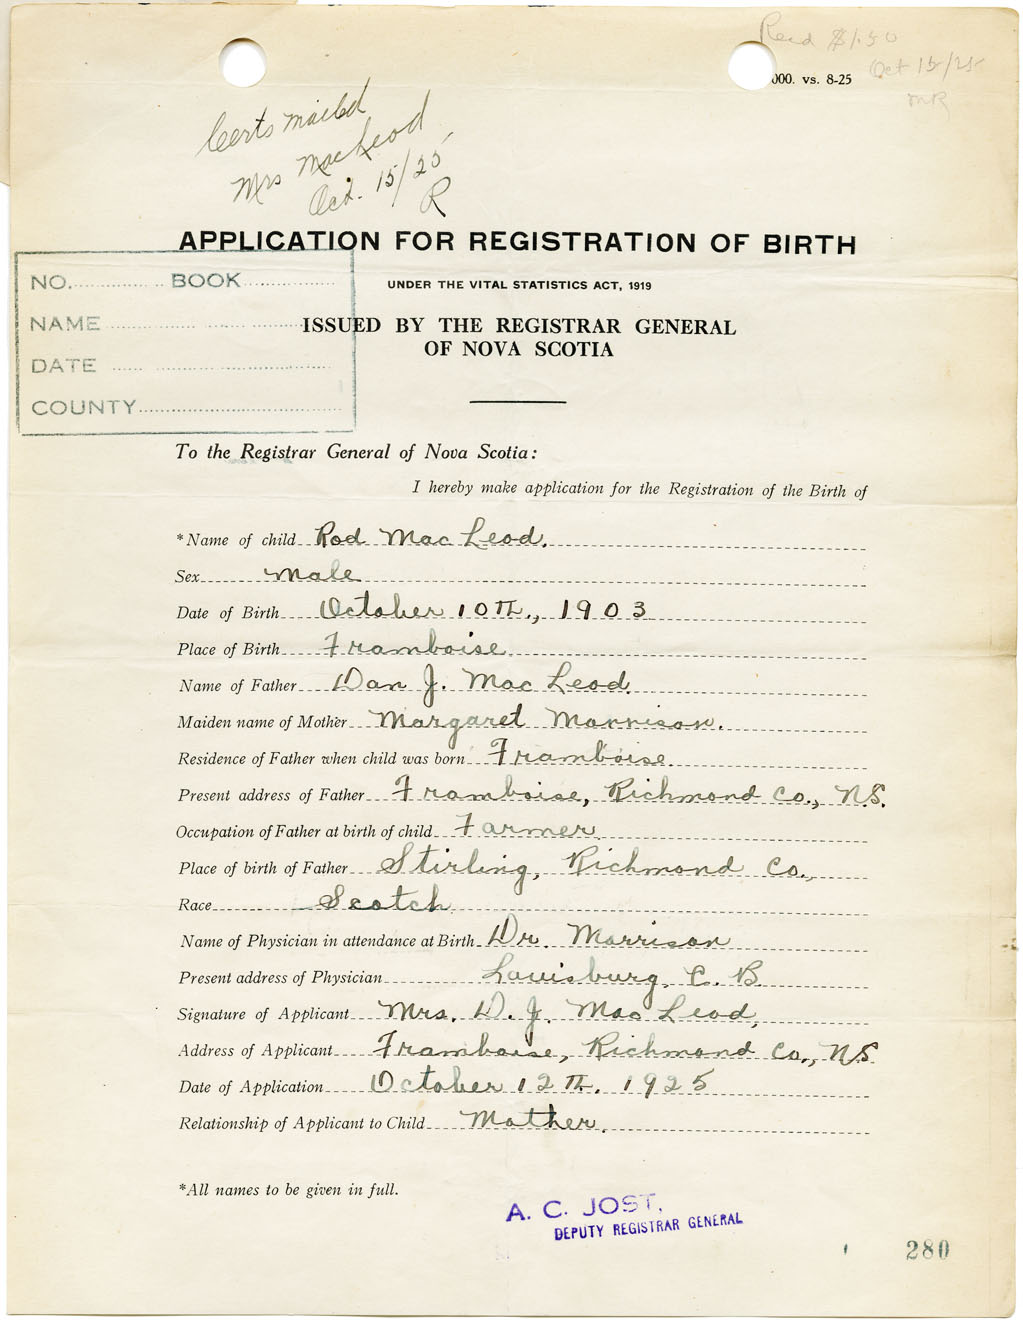 Recd $1.50
Oct 15/25
MR
000. vs. 8-25
Certs mailed
Mrs MacLeod
Oct. 15/25
R
APPLICATION FOR REGISTRATION OF BIRTH
UNDER THE VITAL STATISTICS ACT, 1919
ISSUED BY THE REGISTRAR GENERAL
OF NOVA SCOTIA
NO. BOOK
NAME
DATE
COUNTY
To the Registrar General of Nova Scotia:
I hereby make application for the Registration of the Birth of
*Name of child Rod Mac Leod.
Sex Male
Date of Birth October 10TH., 1903
Place of Birth Framboise
Name of Father Dan J. Mac Leod
Maiden name of Mother Margaret Morrison.
Residence of Father when child was born Framboise
Present address of Father Framboise, Richmond Co., N.S.
Occupation of Father at birth of child Farmer
Place of birth of Father Stirling, Richmond Co.,
Race Scotch
Name of Physician in attendance at Birth Dr. Morrison
Present address of Physician Louisburg, C. B.
Signature of Applicant Mrs. D. J. Mac Leod,
Address of Applicant Framboise, Richmond Co., N.S.
Date of Application October 12TH. 1925
Relationship of Applicant to Child Mother.
*All names to be given in full.
A. C. JOST,
DEPUTY REGISTRAR GENERAL
280